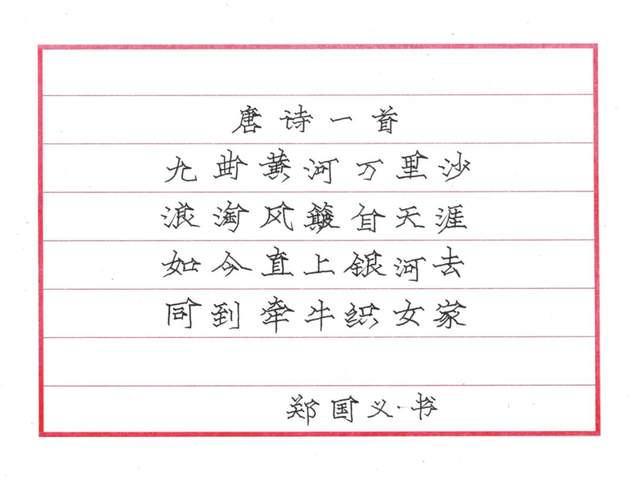 唐诗一首
九曲黄河万里沙
浪淘风簸自天涯
如今直上银河去
同到牵牛织女家
郑国义·书